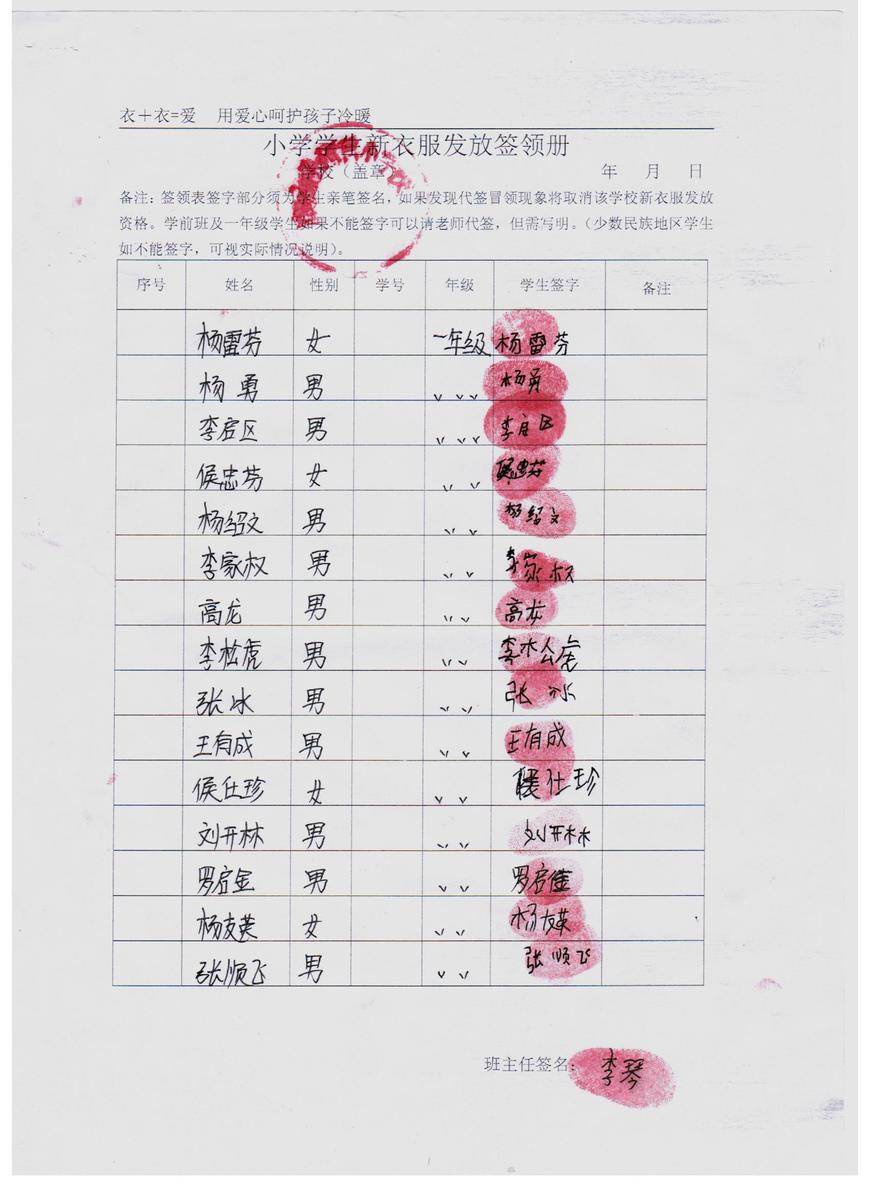 衣+衣=爱 用爱心呵护孩子冷暖
小学学生新衣服发放签领册
学校（盖章） 年 月 日
备注：签领表签字部分须为学生亲笔签名，如果发现代签冒领现象将取消该学校新衣服发放
资格。学前班及一年级学生如果不能签字可以请老师代签，但需写明。（少数民族地区学生
如不能签字，可视实际情况说明）。
序号 姓名 性别 学号 年级 学生签字 备注
杨雷芬 女 一年级 杨雷芬
杨勇 男 〃 杨勇
李启区 男 〃 李启区
侯忠芬 女 〃 侯忠芬
杨绍文 男 〃 杨绍文
李家权 男 〃 李家权
高龙 男 〃 高龙
李松虎 男 〃 李松虎
张冰 男 〃 张冰
王有成 男 〃 王有成
侯仕珍 女 〃 侯仕珍
刘开林 男 〃 刘开林
罗启金 男 〃 罗启金
杨友英 女 〃 杨友英
张顺飞 男 〃 张顺飞
班主任签名：李琴